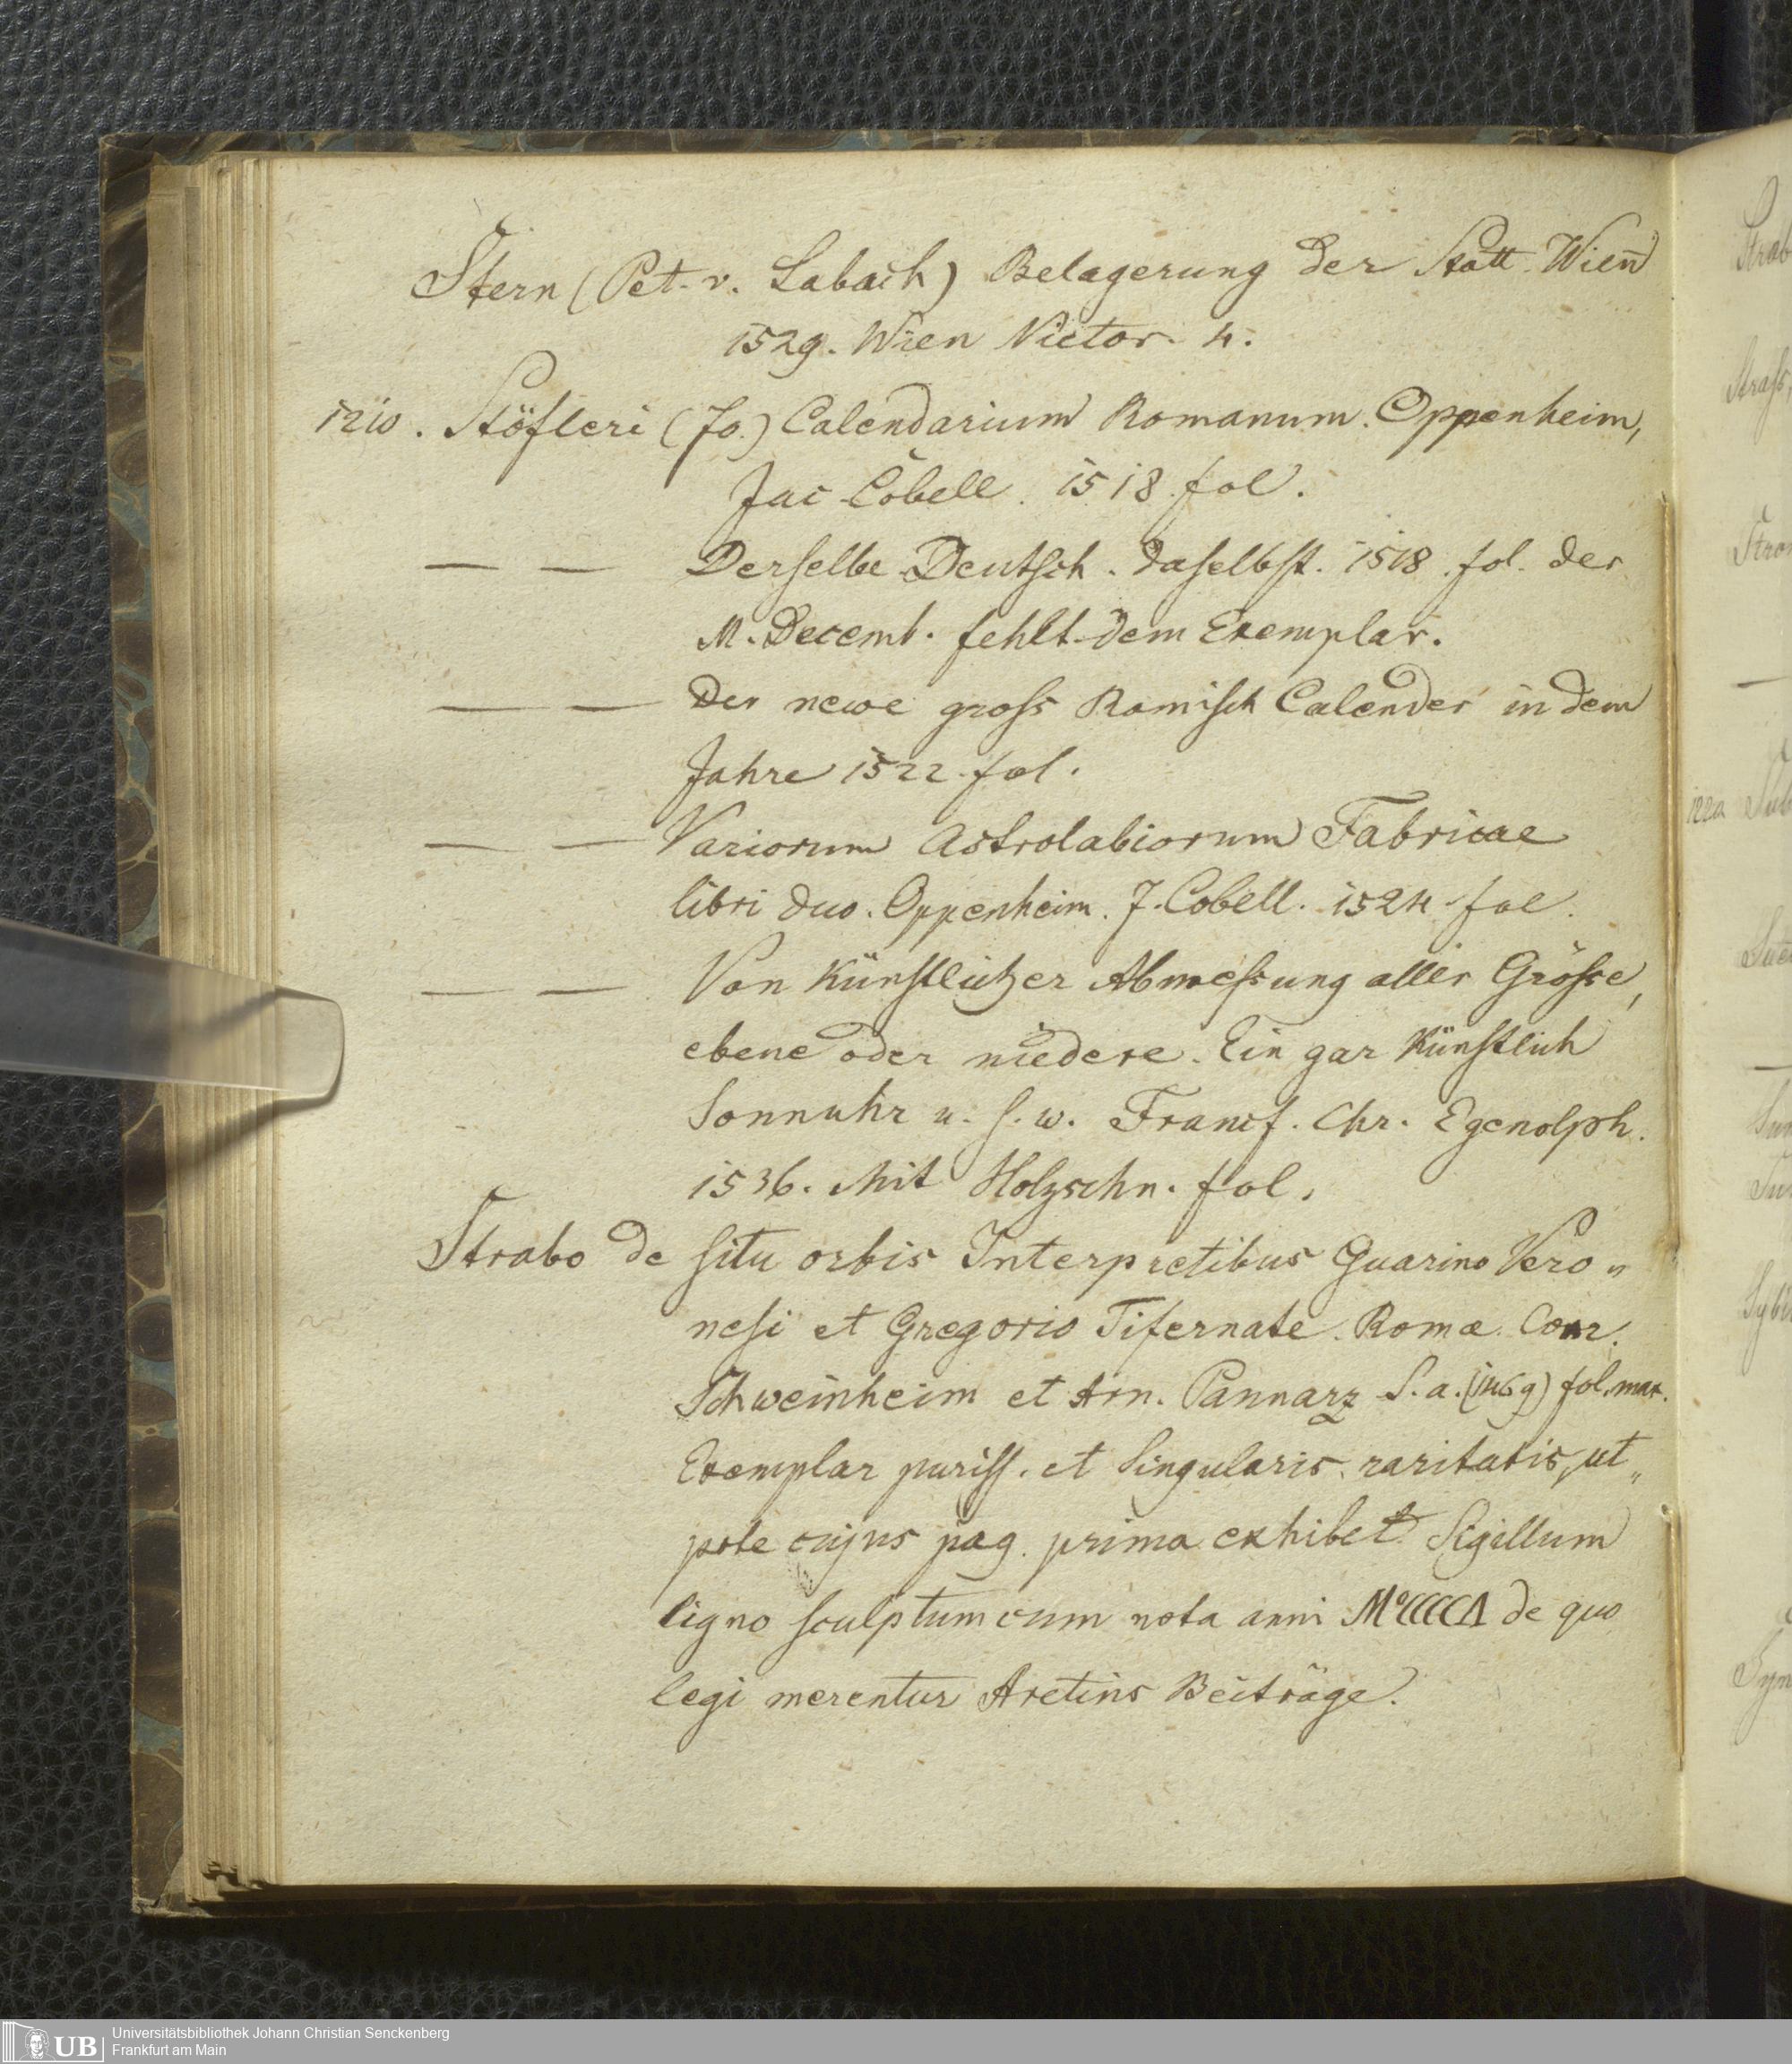 Stern (Pet. v. Labach) Belagerung der Statt Wien̄
1529. Wien Victor. 4.
1210. Stöfleri (Jo.) Calendarium Romanum. Oppenheim,
Jac Cobell. 1518. fol.
— — Derſelbe Deutſch. daſelbſt. 1518. fol. der
M. Decemb. fehlt dem Exemplar.
— — Der newe groſs Romiſch Calender in dem
Jahre 1522. fol.
— — Variorum Astrolabiorum Fabricae
libri duo. Oppenheim. J. Cobell. 1524. fol.
— — Von Künſtlicher Abmeſsung aller Gröſse,
ebene oder niedere. Ein gar Künſtlich
Sonnuhr u. ſ. w. Francf. Chr. Egenolph.
1536. Mit Holzschn. fol.
Strabo de ſitu orbis Interpretibus Guarino Vero„
neſi et Gregorio Tifernate. Romæ. Conr.
Schweinheim et Arn. Pannarz S. a. (1469) fol. max.
Exemplar puriſſ. et Singularis raritatis, ut„
pote cujus pag. prima exhibet Sigillum
ligno ſculptum cum nota anni MºCCCCΛ de quo
legi merentur Aretins Beiträge.
Strab
Straſs
Stro
122a
Universitätsbibliothek Johann Christian Senckenberg
UB Frankfurt am Main